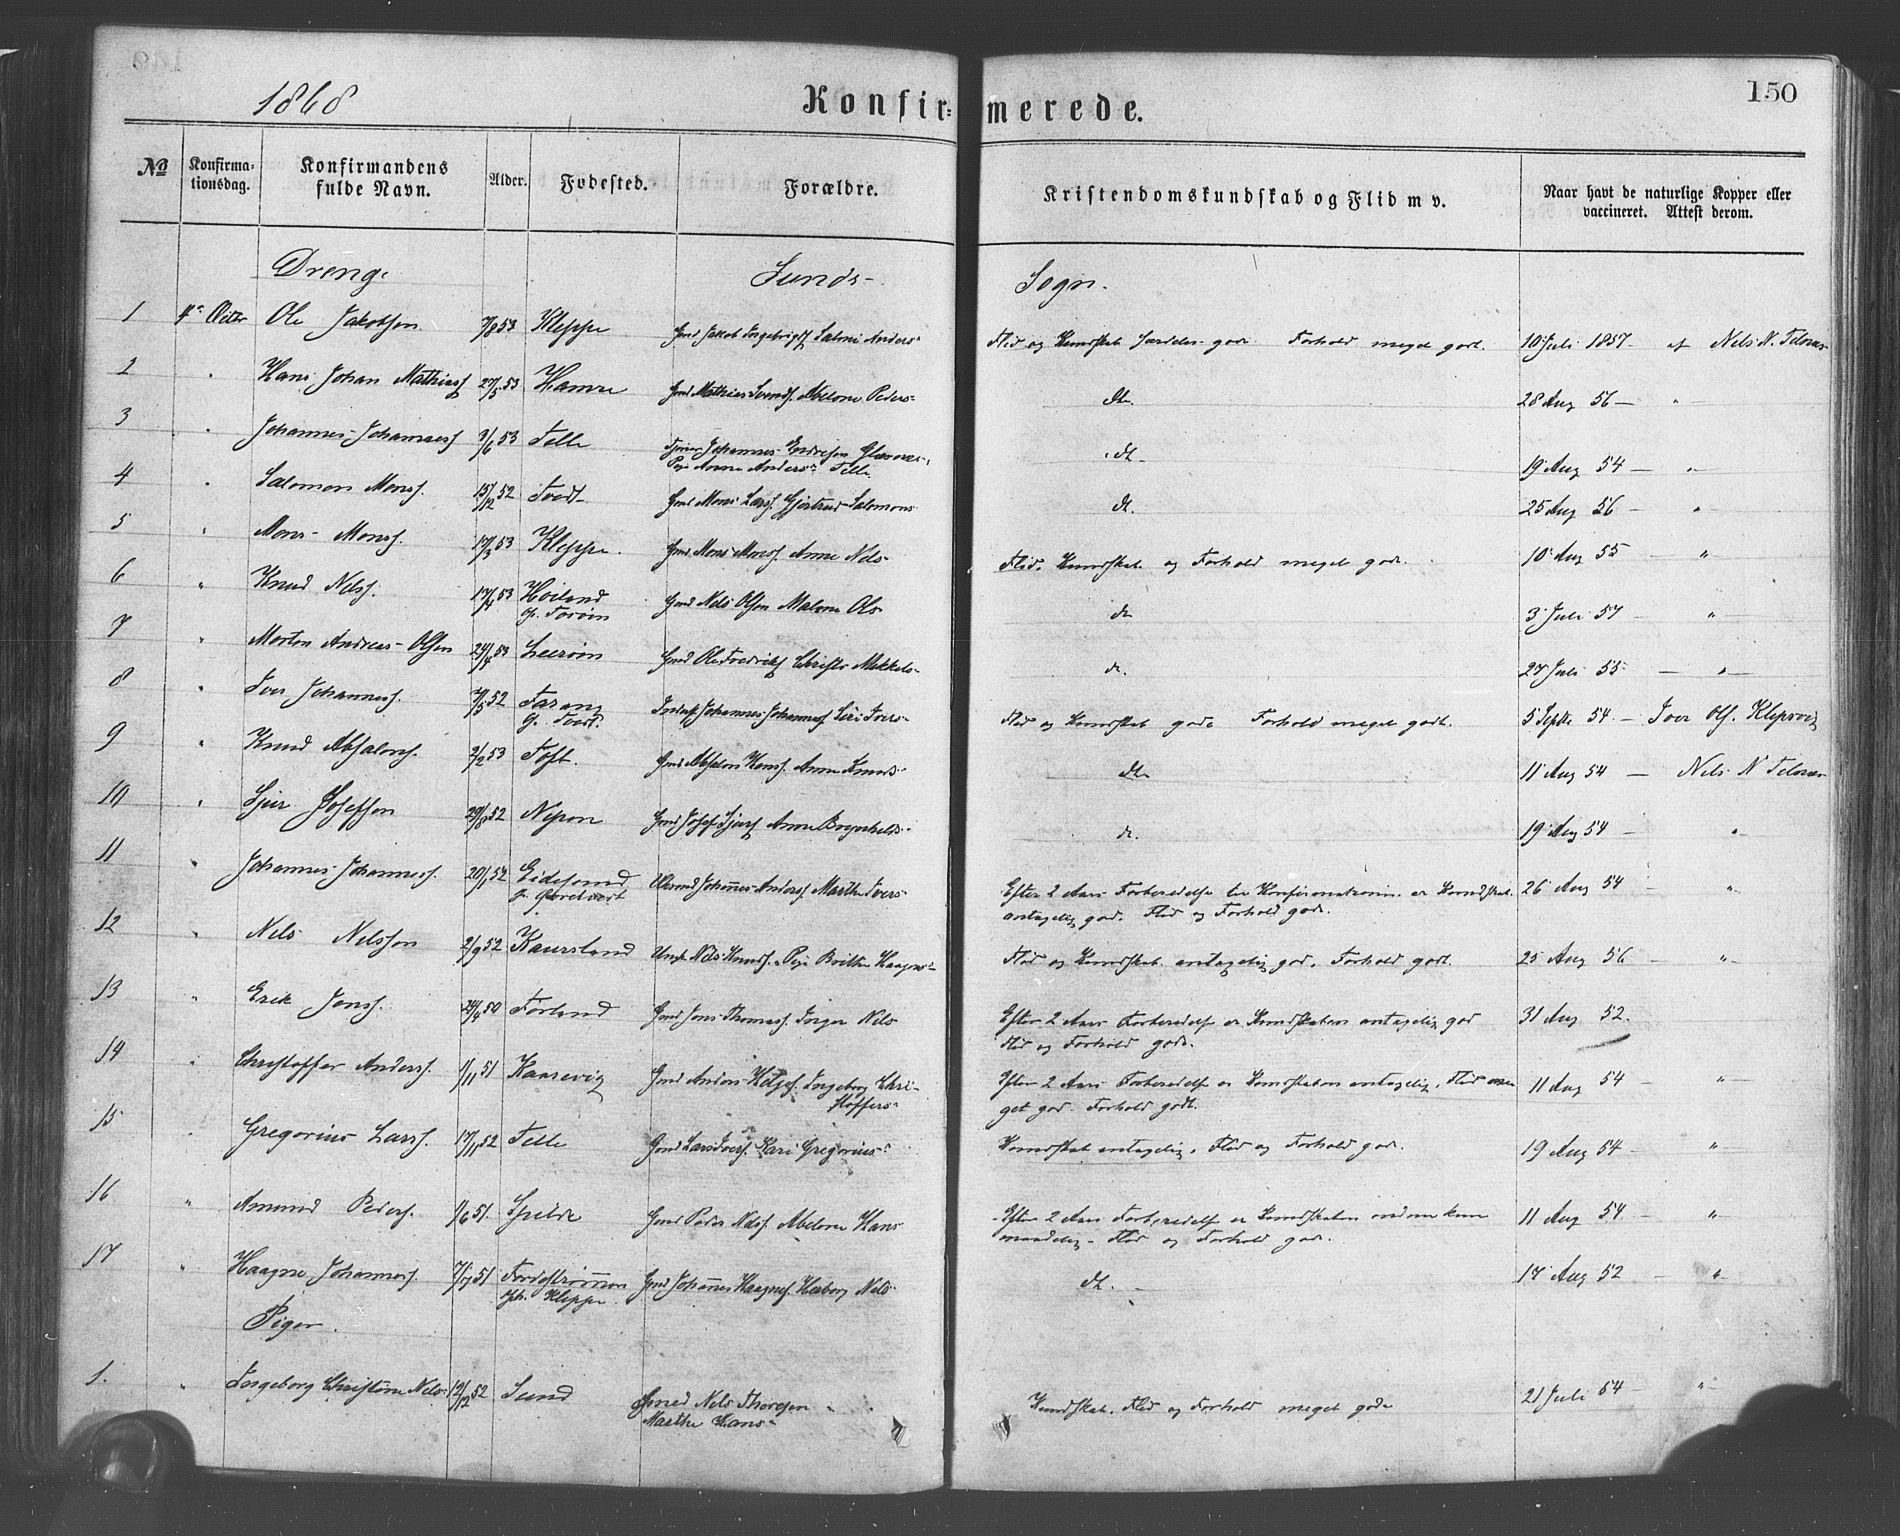 1868 Konfirmerede. 150
№ Konfirmationsdag. Konfirmandens fulde Navn. Alder. Fødested. Forældre. Kristendomskundskab og Flid m v. Naar havt de naturlige Kopper eller vaccineret. Attest derom.
Drenge Sunds- Sogn.
1 Ole Jakobsen 7/8 53 Kleppe Gmd Jakob Salmi Anders- Flid og Kundskab særdeles god Forhold meget godt. 10 Juli 1857 af Nels N.
2 " Hans Johan Mathiass 27/5 53 Hamre Gmd Mathias Svends. Abelone Peders- dto. 28 Aug 56 — "
3 " Johannes Johanness 3/6 53 Telle Johannes Endresen
Pige Anna Anders- Telle dt. 19 Aug 54 — "
4 " Salomon Monss. 15/12 52 Tveit Gmd Mons Larss. Gjertrud Salomons dt. 25 Aug 56 — "
5 " Mons Monss. 17/3 53 Kleppe. Gmd Mons Monss. Anna Nels- Flid, Kundskab og Forhold meget god. 10 Aug 55 — "
6 " Knud Nelss. 17/4 53 Høiland Gmd Nels Olsen Malene Ols- dt 3 Juli 57 "
7 " Morten Andreas Olsen 24/4 53 Leerøen Gmd Ole Fredriks Christi Mikkels- dt. 27 Juli 55 — "
8 " Iver Johanness. 7/5 52 Tarang
Tveit. Johannes Johanness Siri Ivers- Flid og Kundskab god. Forhold meget godt. 5 Septbr 54 — Iver Ols. Klepsvig
9 " Knud Absalons. 2/2 53 Toft. Gmd Absalon Hanss. Anna Knuds- dto 11 Aug 54 — Nels N
10 " Sjur Josefsen 29/8 52 Nipen Gmd Josef Sjurs Anna Brynhilds- dt. 19 Aug 54 — "
11 " Johannes Johanness. 20/1 52 Eidesund Johannes Anderss. Marthe Ivers- Efter 2 Aars Forberedelse til Konfirmationen er Kundskab
antagelig god. Flid og Forhold god. 26 Aug 54 — "
12 " Nels Nelsson 2/9 52 Kaursland Ungk Nels Knuds. Pige Brithe Haagens- Flid og Kundskab antagelig god, Forhold godt. 25 Aug 56 — "
13 " Erik Jonss. 24/4 50 Førland Gmd Jons Thomass. Inger Nels Efter 2 Aars Forberedelse er Kundskaben antagelig god
Flid og Forhold god. 31 Aug 52.
14 " Christoffer Anderss. 1/11 51 Kaarevig Gmd Anders Helges. Ingeborg Chri-
stoffers- Efter 2 Aars Forberedelse er Kundskaben antagelig, Flid me-
get god. Forhold godt. 11 Aug 54 — "
15 Gregorius Larss. 17/11 52 Telle Gmd Lars Ivers. Kari Gregorius- Kundskab antagelig, Flid og Forhold god. 19 Aug 54 — "
16 " Amund Peders. 1/6 51. Spilde Gmd Peder Nels. Abelone Hans Efter 2 Aars Forberedelse er Kundskaben
maadelig - Flid og Forhold god. 11 Aug 54 — "
17 " Haagen Johanness. 7/7 51 Fordestrømmen
Kleppe Gmd Johannes Haagens. Herborg Nels- dt. 17 Aug 52 — "
Piger.
1. " Ingeborg Christine Nels- 12/12 52 Sund Gmd Nels Thoresen
Marthe Hans- Kundskab, Flid og Forhold meget god. 21 Juli 54 — "